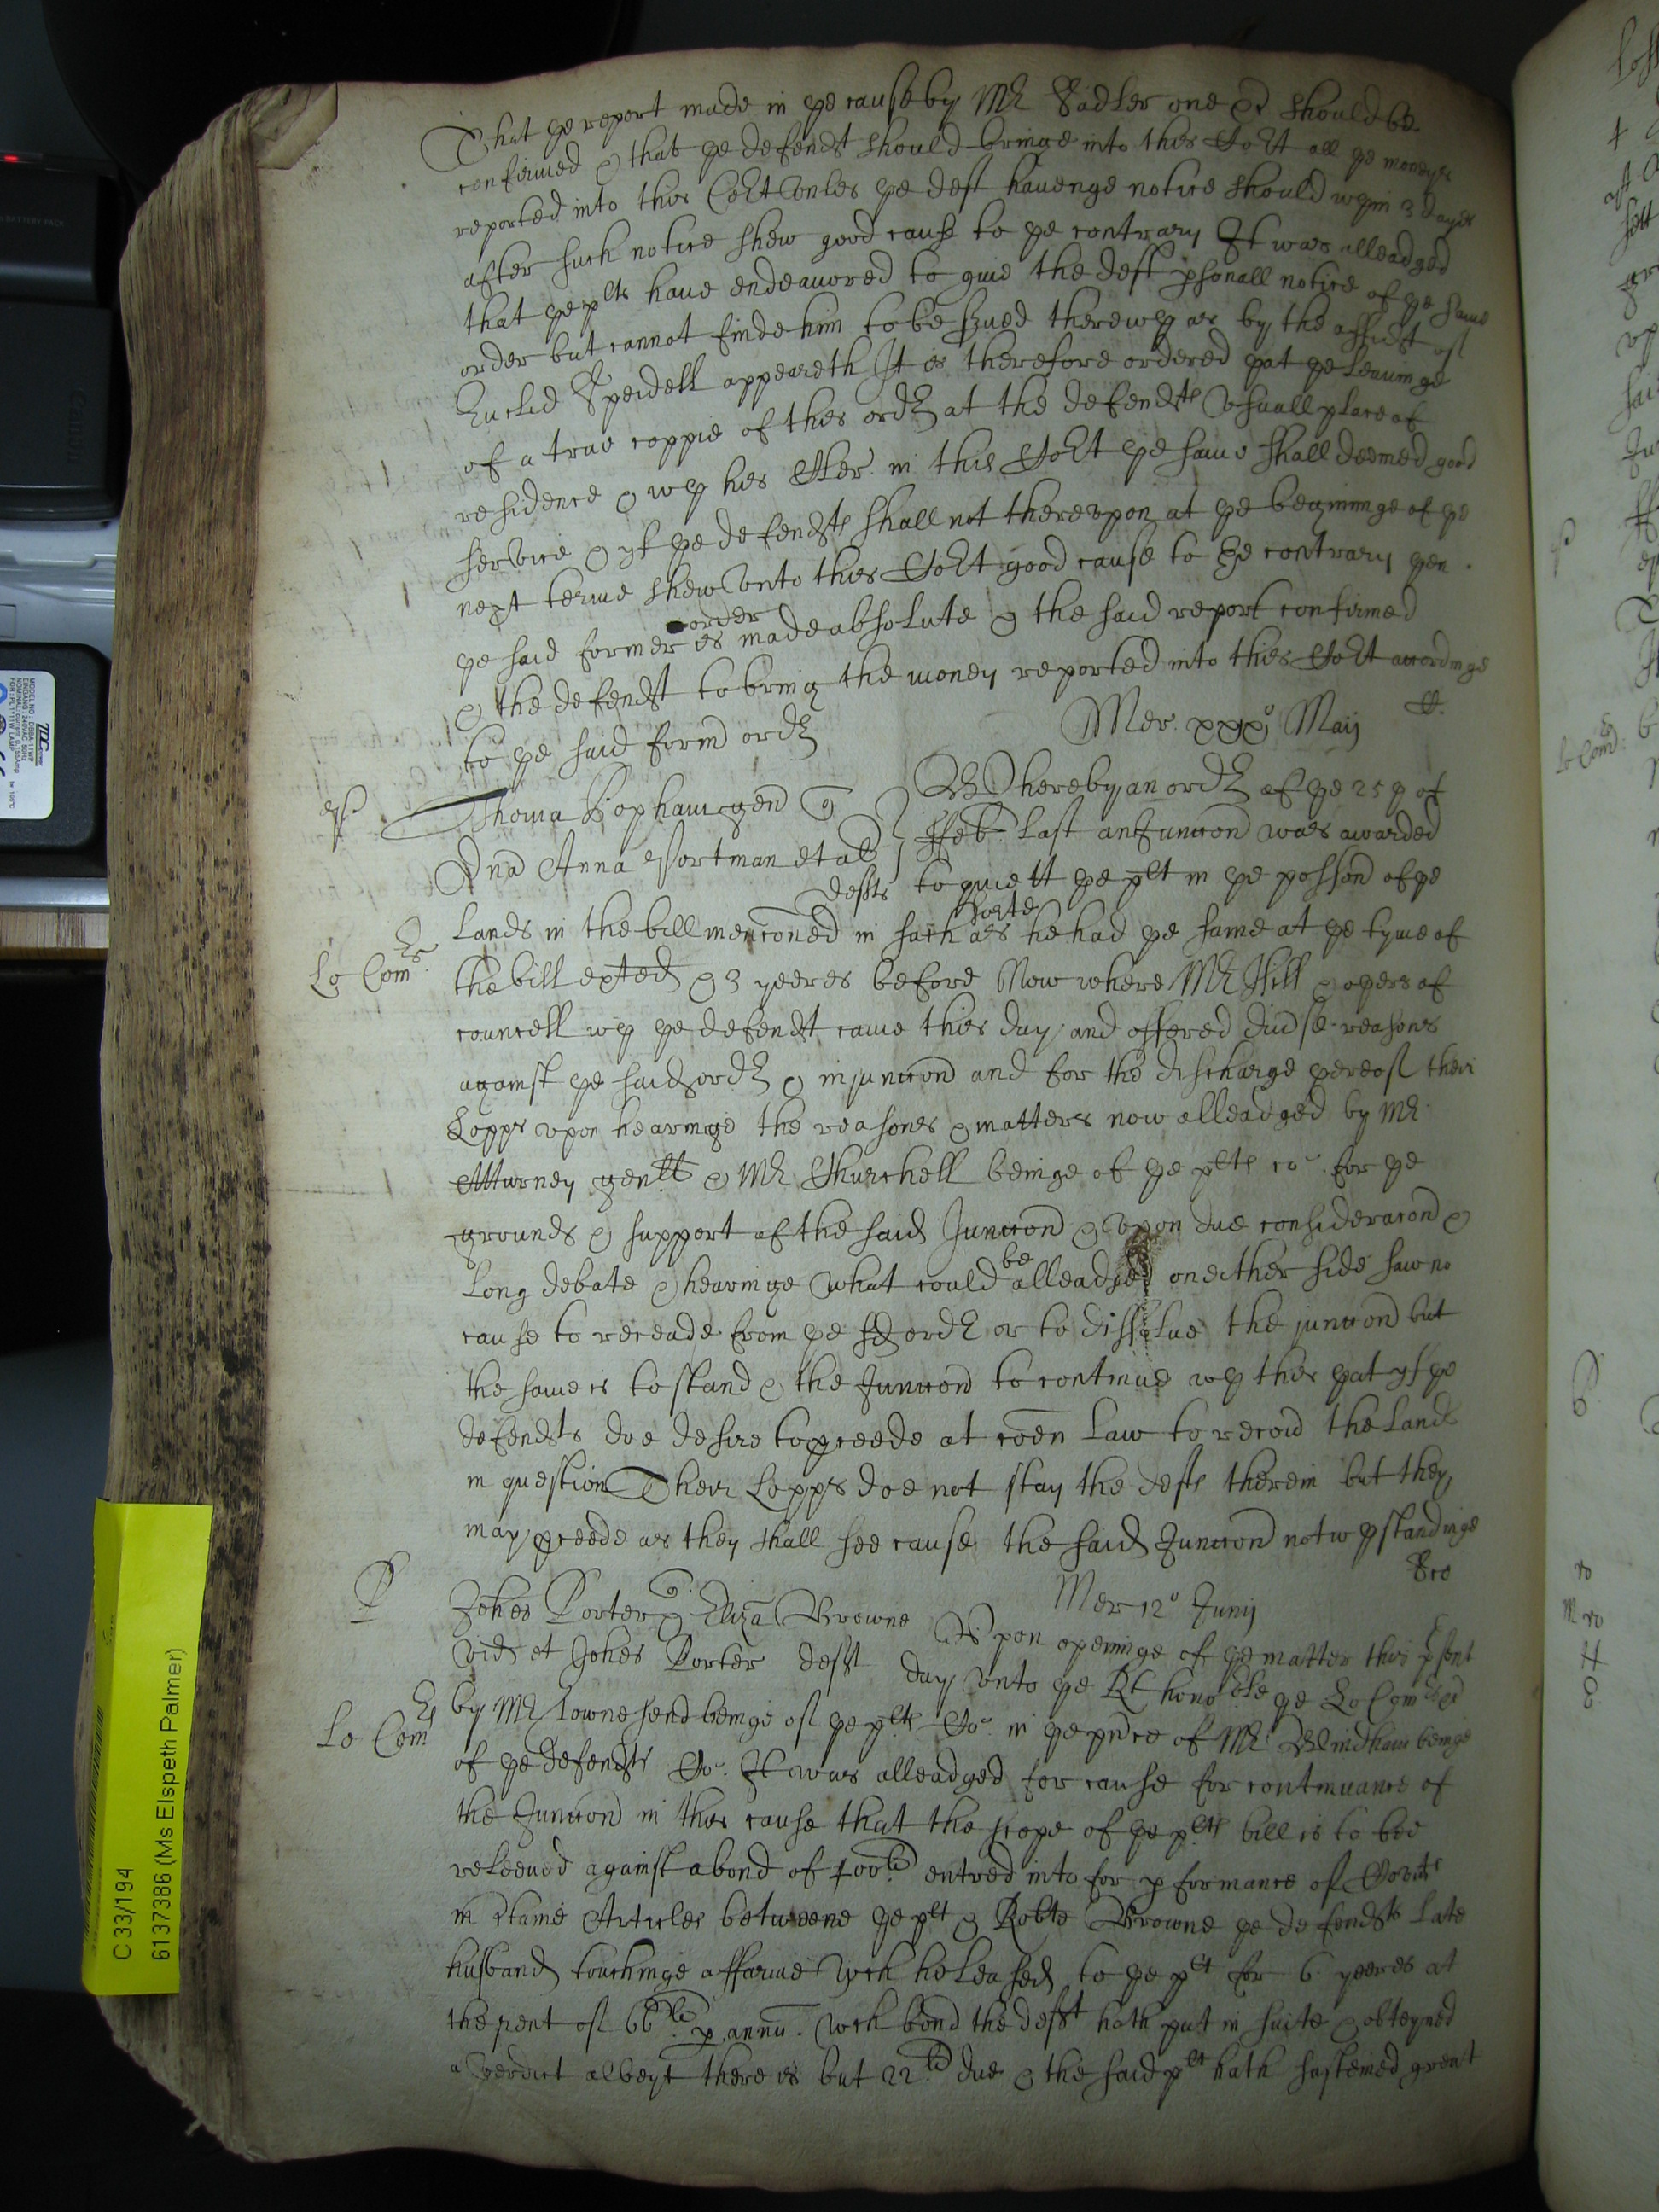 That ye report made in ye cause by Mr Sadler one &c should be
confirmed & that ye defendt should bringe into this Cort all ye moneyes
reported into this Cort Vnles ye deft havenge notice should wyin 3 dayes
after such notice shew good cause to ye contrary It was alleadged
that ye plts haue endeauored to giue the deft psonall notice of ye same
order but cannot finde him to be served therewy as by the affidt of
Euclid Speidell appeareth It is therefore ordered yat ye leauinge
of a true coppie of this ordr at the defendts Vsuall place of
residence & wy his Clker in this Cort ye same shall deemed good
service & yf ye defendts shall not therevpon at ye begininge of ye
next terme shew Vnto this Cort good cause to ye contrary yen
ye said former order is made absolute & the said report confirmed
& the defendt to bring the money reported into this Cort accordinge
to ye said formd ordr
Mer xxx° Maij
Thoma Popham gen q
Whereby an ordr of ye 25 of
Dna Anna Portman et al
defts
ffeb last an Junccon was awarded
to quiett ye plt in ye possion of ye
Lo Comrs
Lands in the bill menconed in such sorte as he had ye same at ye tyme of
the bill exted & 3 yeeres before Now where Mr Hill & oyers of
councell wy ye defendt came this day and offered diuse reasons
against ye said ordr & injunccon and for the discharge yereof their
Lopps vpon hearinge the reasones & matters now alleadged by Mr
Atturney genll & Mr Thurchell beinge of ye plts co for ye
grounds & support of the said Junccon & vpon due consideracon &
Long debate & hearinge what could be alleadged on either side saw no
cause to receade from ye sd ordr or to dissolue the junccon but
the same is to stand & the Junccon to continue wy this yat yf ye
defendts doe desire to pceede at coen Law to recoud the Lands
in question Their Lopps doe not stay the defts therein but they
may pceede as they shall see cause the said Junccon notwystandinge
P
Johes Porter q Eliza Browne
Mer 12° Junij
Vid et Johes Porter deft
Vpon openinge of ye matter this psent
day Vnto ye Rt honoble ye Lo Comrs
Lo Comrs
by Mr Townesend beinge of ye plts Co in ye pnce of Mr Windham beinge
of ye defendts Co It was alleadged for cause for continuance of
the Junccon in this cause that the scope of ye plts bill is to bee
releeued against a bond of 400li entred into for pformance of Covts
in Ctaine Articles betweene ye plt & Robte Browne ye defendts late
husband touchinge a ffarme wch he leased to ye plt for 6 yeeres at
the rent of 66li p annu wch bond the deft hath put in suite & obteyned
a Verdict albeyt there is but 22li due & the said plt hath susteined great
C 33/194
6137386 (Ms Elspeth Palmer)